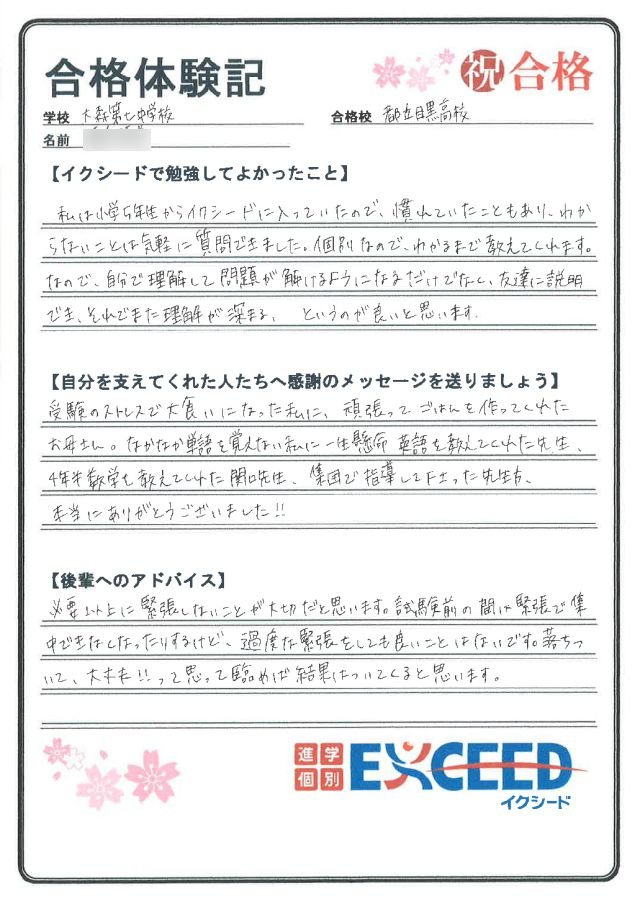 合格体験記
祝 合格
学校 大森第七中学校
合格校 都立目黒高校
名前
【イクシードで勉強してよかったこと】
私は小学5年生からイクシードに入っていたので、慣れていたこともあり、わか
らないことは気軽に質問できました。個別なので、わかるまで教えてくれます。
なので、自分で理解して問題が解けるようになるだけでなく、友達に説明
でき、それでまた理解が深まる、というのが良いと思います。
【自分を支えてくれた人たちへ感謝のメッセージを送りましょう】
受験のストレスで大食いになった私に、頑張ってごはんを作ってくれた
お母さん。なかなか単語を覚えない私に一生懸命英語を教えてくれた先生、
4年半数学を教えてくれた関口先生、集団で指導して下さった先生方、
本当にありがとうございました!!
【後輩へのアドバイス】
必要以上に緊張しないことが大切だと思います。試験前の間は緊張で集
中できなくなったりするけど、過度な緊張をしても良いことはないです。落ちつ
いて、大丈夫!!って思って臨めば結果はついてくると思います。
進学
個別
EXCEED
イクシード